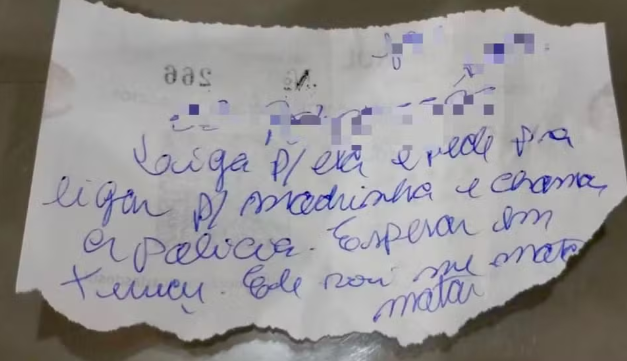 266
Liga p/ ela e pede pra
ligar p/ madrinha e chama
a policia. Esperar em
Ele vai me mata
matar